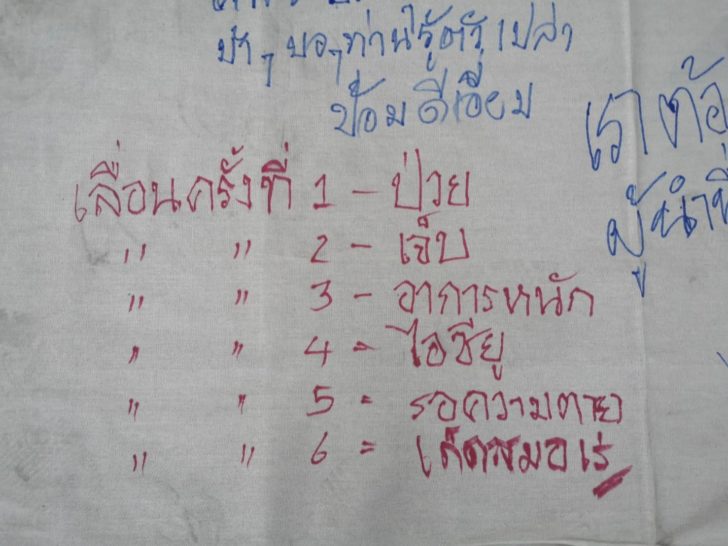 ป่าๆ บอๆ ท่านรู้ตัวเปล่า
ป้อม ดีเอี่ยม
เราต้อ
ผู้นำที
เลื่อนครั้งที่ 1 - ป่วย
" " 2 - เจ็บ
" " 3 - อาการหนัก
" " 4 = ไอซียู
" " 5 = รอความตาย
" " 6 = เด็ดสมอเร่